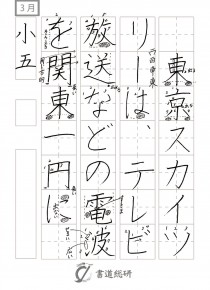 3月
東京スカイツ
リーは、テレビ
放送などの電波
を関東一円に
小五
書道総研